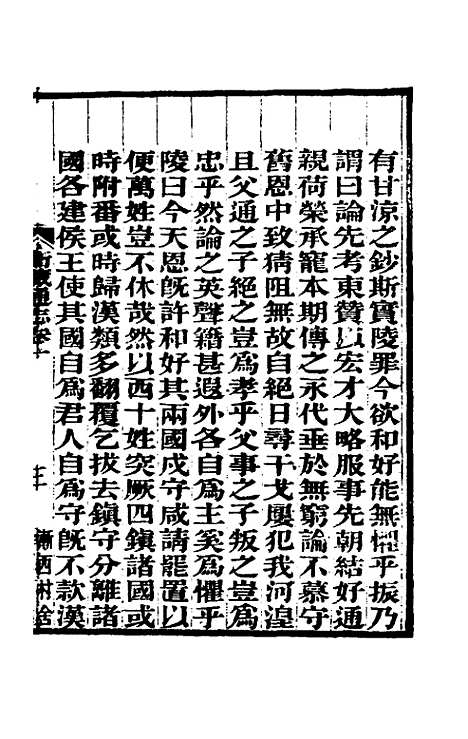 有甘涼之鈔斯實陵罪今欲和好能無懼乎振乃
謂曰論先考東贊以宏才大略服事先朝結好通
親荷榮承寵本期傳之永代垂於無窮論不慕守
舊恩中致猜阻無故自絕日尋干戈屢犯我河湟
且父通之子絕之豈爲孝乎父事之子叛之豈爲
忠乎然論之英聲籍甚遐外各自爲主奚爲懼乎
陵曰今天恩旣許和好其兩國戍守咸請罷置以
便萬姓豈不休哉然以西十姓突厥四鎮諸國或
時附番或時歸漢類多翻覆乞拔去鎮守分離諸
國各建侯王使其國自爲君人自爲守旣不款漢
衛藏通志卷十
漸西村舍